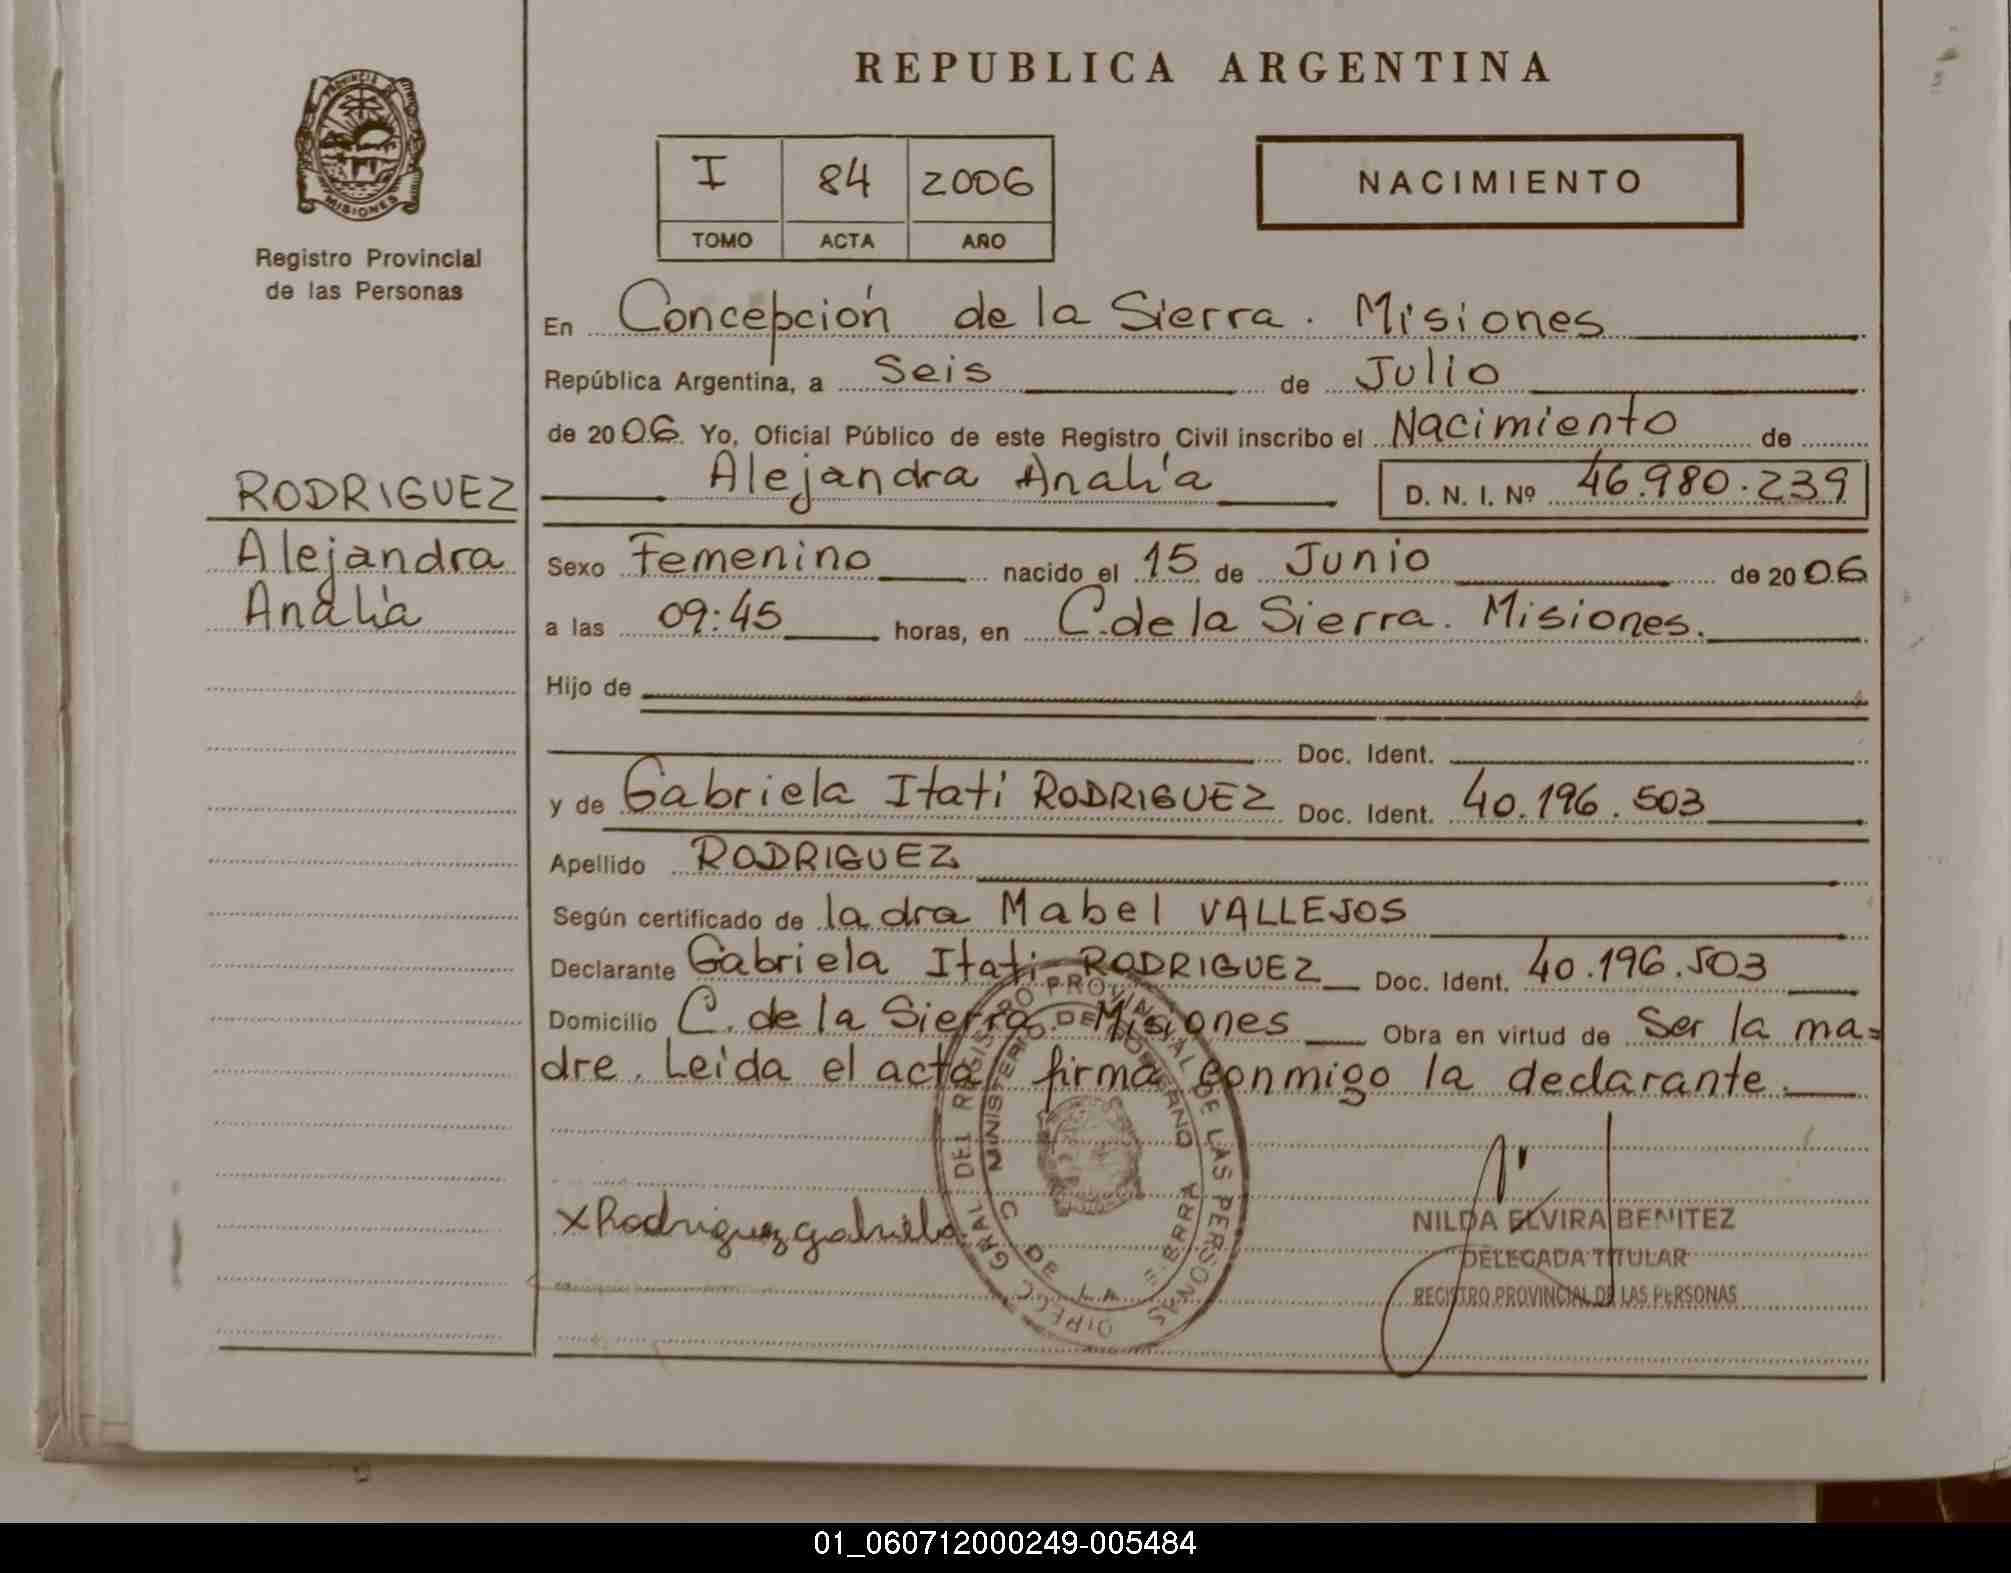 REPUBLICA ARGENTINA
PROVINCIA DE
MISIONES
Registro Provincial
de las Personas
I 84 2006
TOMO ACTA AÑO
NACIMIENTO
En Concepción de la Sierra. Misiones
República Argentina, a Seis de Julio
de 2006. Yo, Oficial Público de este Registro Civil inscribo el Nacimiento de
Alejandra Analía D. N. I. Nº 46.980.239
RODRIGUEZ
Alejandra
Analía
Sexo Femenino nacido el 15 de Junio de 2006
a las 09:45 horas, en C. de la Sierra. Misiones.
Hijo de
Doc. Ident.
y de Gabriela Itati RODRIGUEZ Doc. Ident. 40.196.503
Apellido RODRIGUEZ
Según certificado de la dra Mabel VALLEJOS
Declarante Gabriela Itati RODRIGUEZ Doc. Ident. 40.196.503
Domicilio C. de la Sierra. Misiones Obra en virtud de Ser la ma=
dre. Leida el acta firma conmigo la declarante.
DIRECC GRAL DEL REGISTRO PROVINCIAL DE LAS PERSONAS
MINISTERIO DE GOBIERNO
C DE LA SIERRA
x Rodriguez gabriela
NILDA ELVIRA BENITEZ
DELEGADA TITULAR
REGISTRO PROVINCIAL DE LAS PERSONAS
01_060712000249-005484